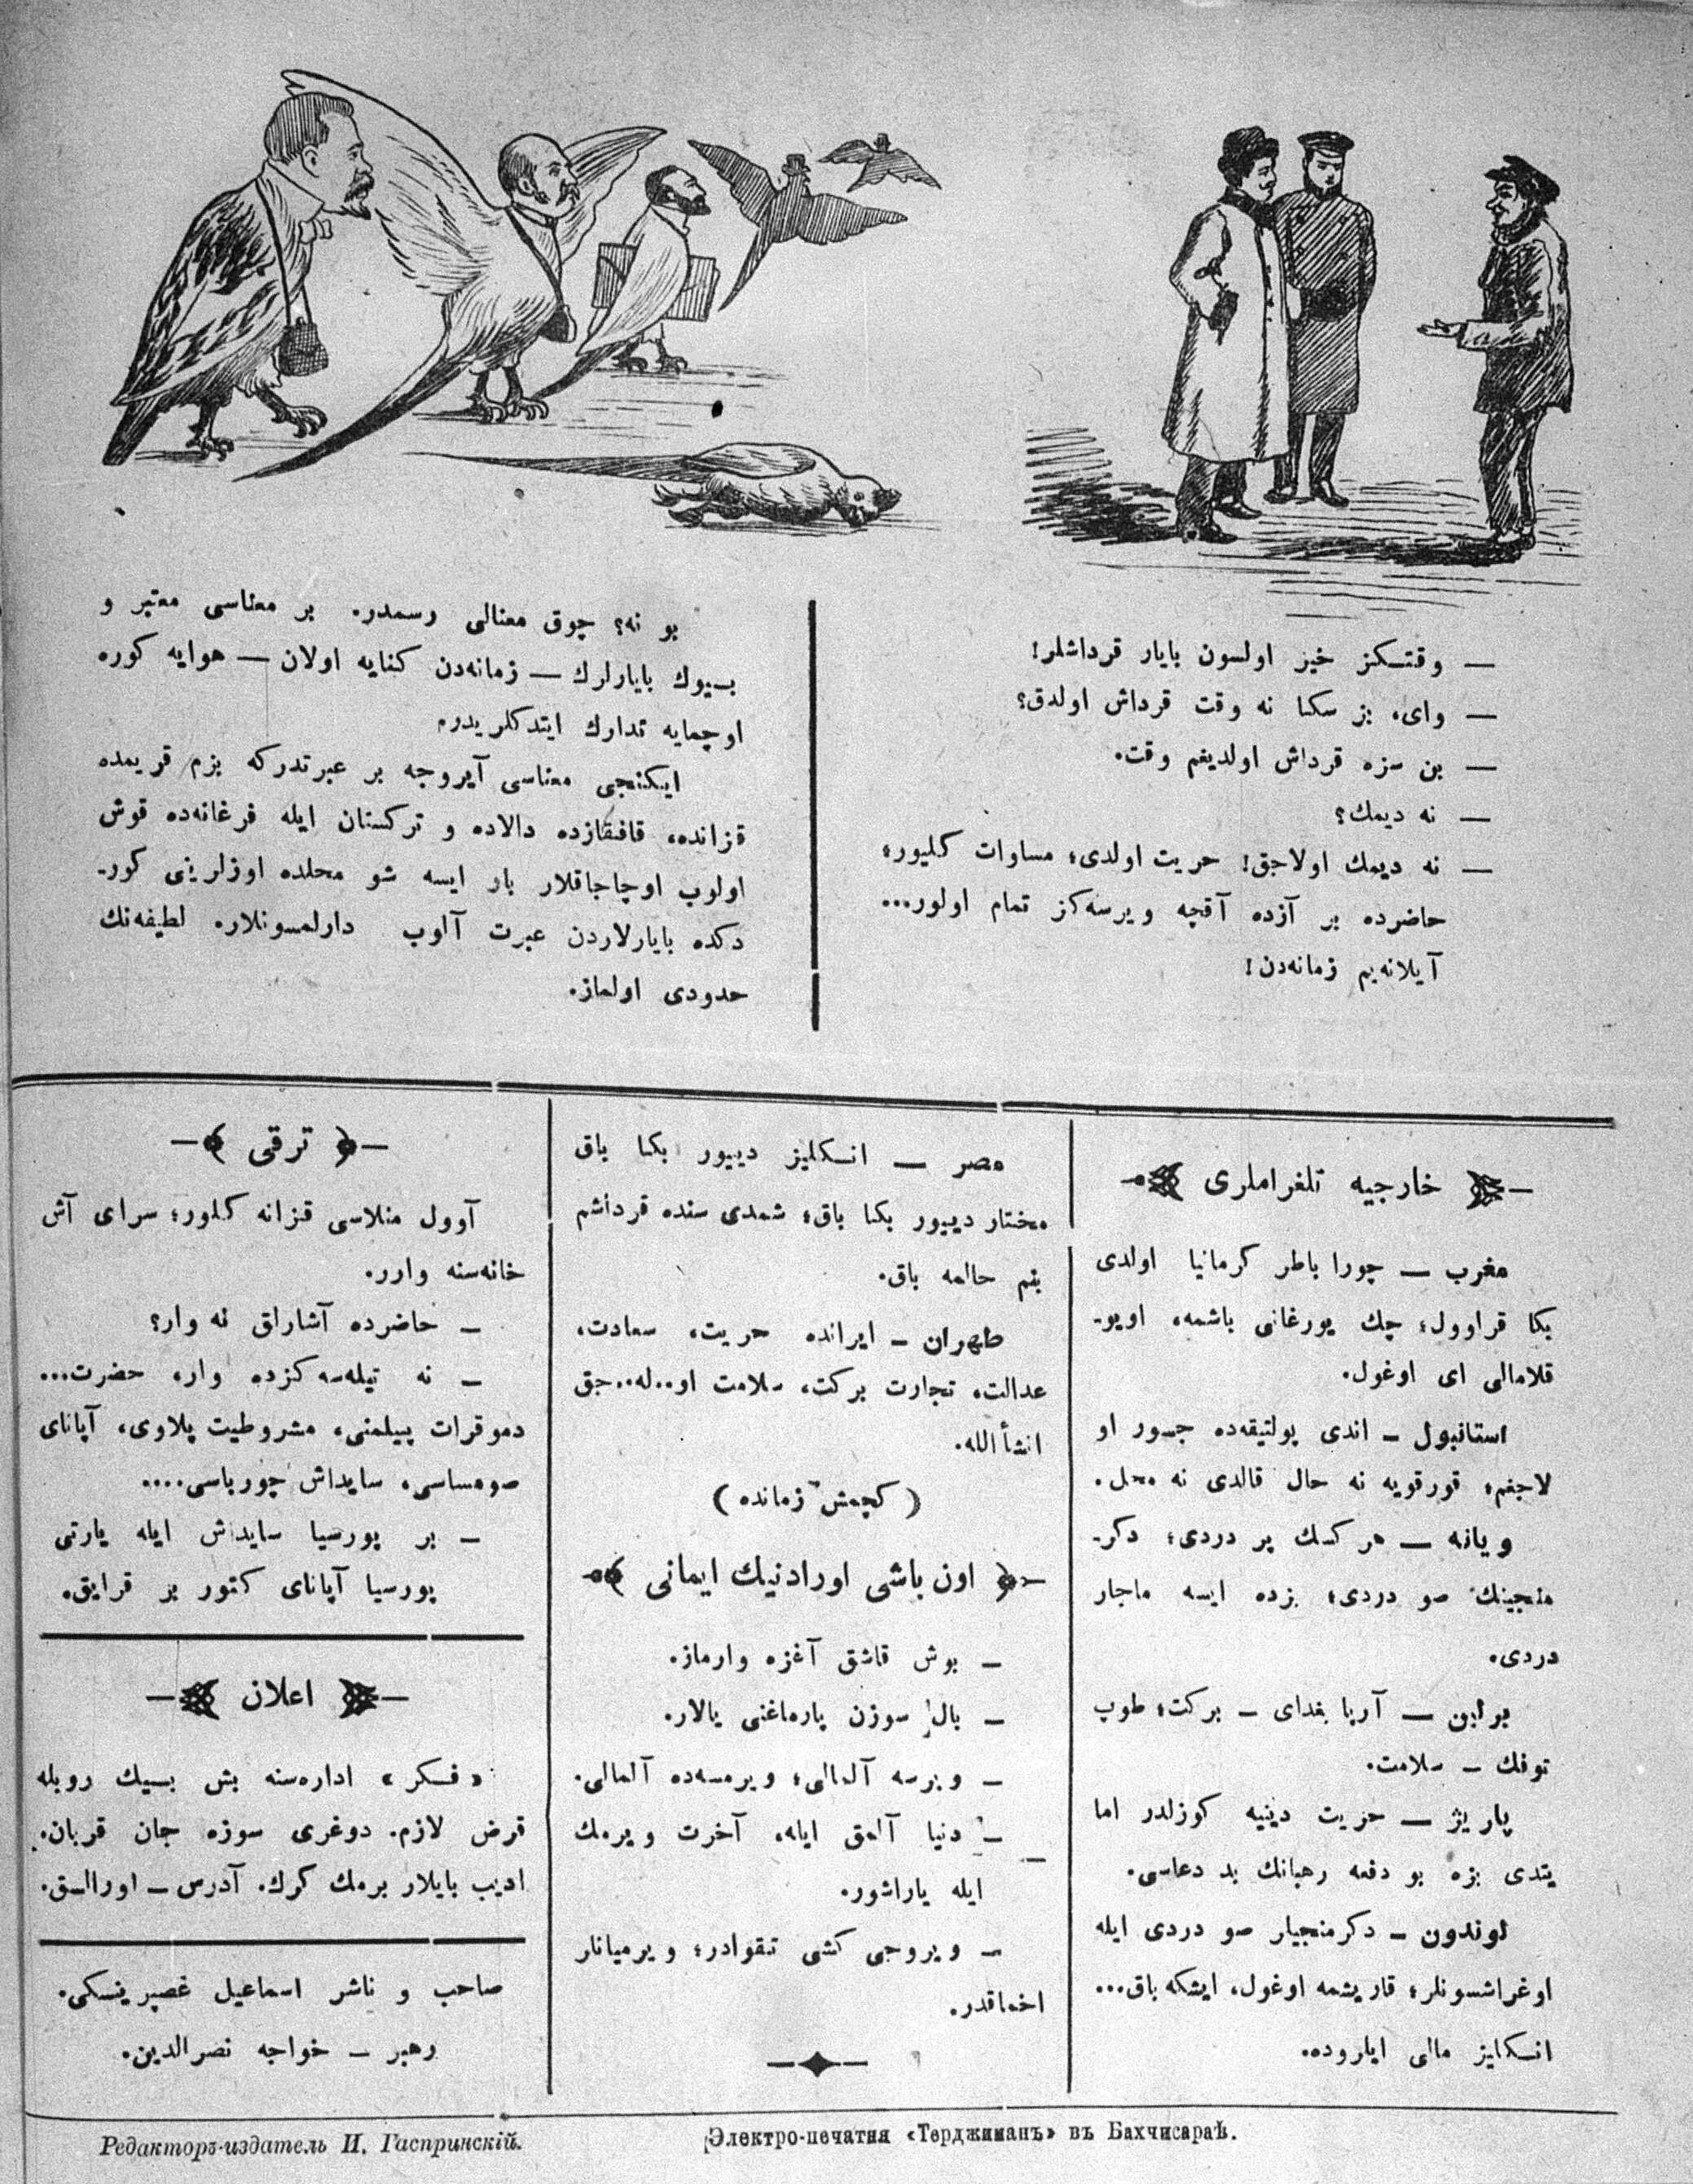 — وقتكز خیر اولسون بایار قرداشلر!
— وای، بز سكا نه وقت قرداش اولدق؟
— بن سزه قرداش اولدیغم وقت.
— نه دیمك؟
— نه دیمك اولاجق! حریت اولدی؛ مساوات كلیور؛
حاضرده بر آزده آقچه ویرسه‌كز تمام اولور...
آیلانه‌یم زمانه‌دن!
بو نه؟ چوق معنالی رسمدر. بر معناسی معتبر و
بیوك بایارلرك — زمانه‌دن كنایه اولان — هوایه كوره
اوچمایه تدارك ایتدكلریدر.
ایكنجی معناسی آیروجه بر عبرتدركه بزم قریمده
قزانده، قافقازده دالاده و تركستان ایله فرغانه‌ده قوش
اولوب اوچاجاقلار بار ایسه شو محلده اوزلرینی كور-
دكده بایارلاردن عبرت آلوب دارلمسونلار. لطیفه‌نك
حدودی اولماز.
خارجیه تلغراملری
مغرب — چورا باطر كرمانیا اولدی
بكا قراوول؛ چك یورغانی باشمه، اویو-
قلامالی ای اوغول.
استانبول — اندی پولتیقه‌ده جسور او
لاجغم؛ قورقویه نه حال قالدی نه محل.
ویانه — هر كسك بر دردی؛ دكر-
منجینك صو دردی؛ بزده ایسه ماجار
دردی.
برلین — آرپا بغدای — بركت؛ طوپ
توفك — سلامت.
پاریژ — حریت دینیه كوزلدر اما
یتدی بزه بو دفعه رهبانك بد دعاسی.
لوندون — دكرمنجیلر صو دردی ایله
اوغراشسونلر؛ قاریشمه اوغول، ایشكه باق...
انكلیز مالی ایلروده.
مصر — انكلیز دییور بكا باق
مختار دییور بكا باق؛ شمدی سنده قرداشم
بنم حالمه باق.
طهران — ایرانده حریت، سعادت،
عدالت، تجارت بركت، سلامت او..له..جق
انشأالله.
(كچمش زمانده)
اون باشی اورادنیك ایمانی
— بوش قاشق آغزه وارماز.
— بال سوزن پارماغنی یالار.
— ویرسه آلمالی؛ ویرمسه‌ده آلمالی.
— دنیا آلمق ایله، آخرت ویرمك
ایله یاراشور.
— ویروجی كشی تقوادر؛ ویرمیانلر
اخماقدر.
ترقی
آوول منلاسی قزانه كلور؛ سرای آش
خانه‌سنه وارر.
— حاضرده آشاراق نه وار؟
— نه تیله‌سه‌كزده وار، حضرت...
دموقرات پیلمنی، مشروطیت پلاوی، آپانای
صومساسی، سایداش چورباسی....
— بر پورسیا سایداش ایله یارتی
پورسیا آپانای كتور بز قرایق.
اعلان
«فكر» اداره‌سنه بش بیك روبله
قرض لازم. دوغری سوزه جان قربان.
ادیب بایلار برمك كرك. آدرس — اورالسق.
صاحب و ناشر اسماعیل غصپرینسكی.
رهبر — خواجه نصرالدین.
Редакторъ-издатель И. Гаспринскій.
Электро-печатня «Терджиманъ» въ Бахчисараѣ.